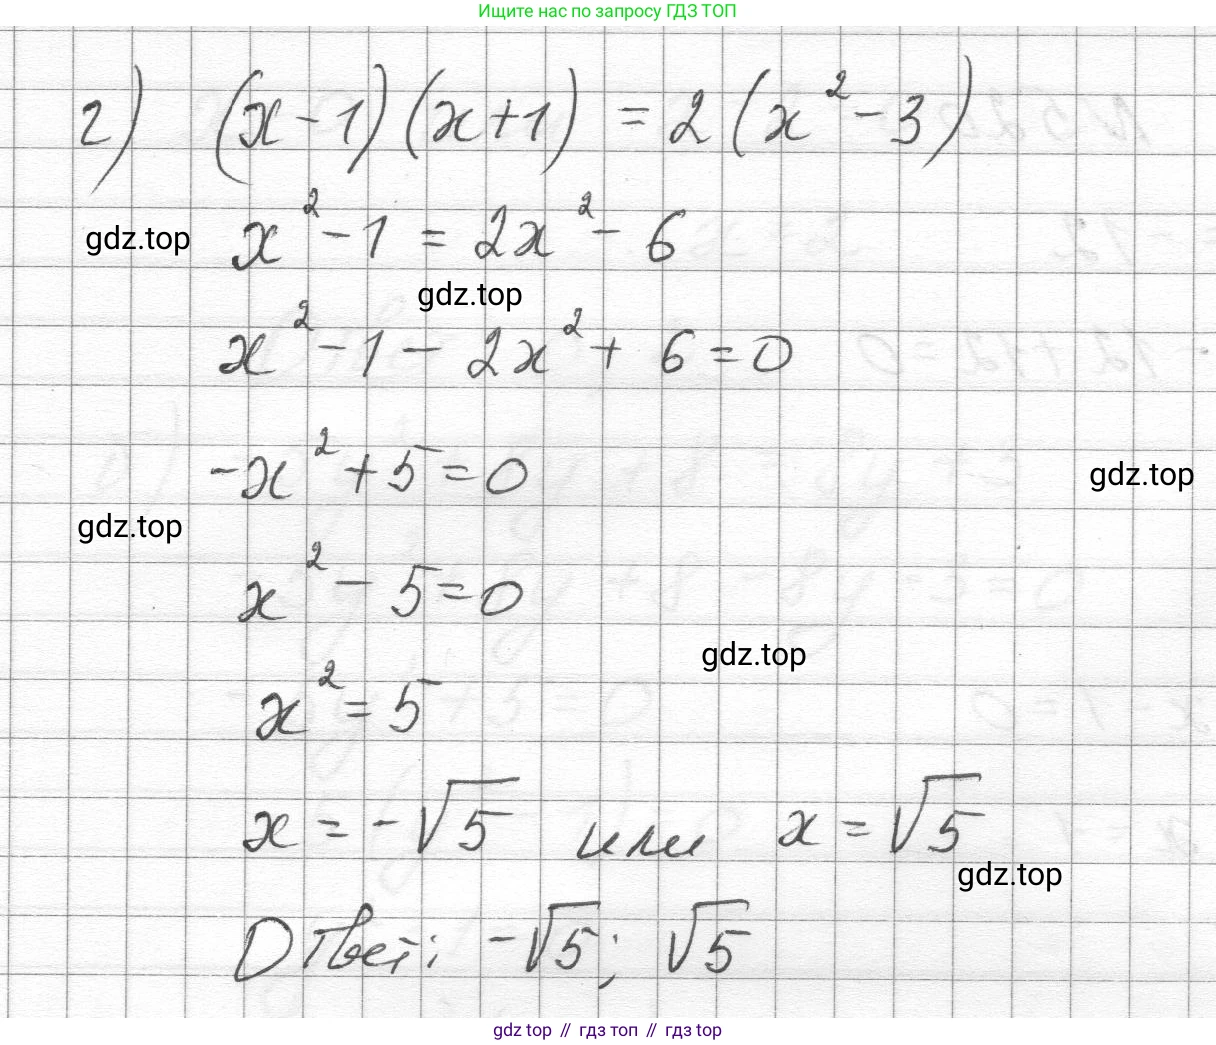 Ищите нас по запросу ГДЗ ТОП
г) (x-1)(x+1) = 2(x²-3)
x²-1 = 2x²-6
gdz.top
gdz.top
x²-1-2x²+6=0
-x²+5=0
gdz.top
gdz.top
x²-5=0
gdz.top
x²=5
x=-√5 или x=√5
gdz.top
Ответ: -√5; √5
gdz top // гдз топ // гдз top